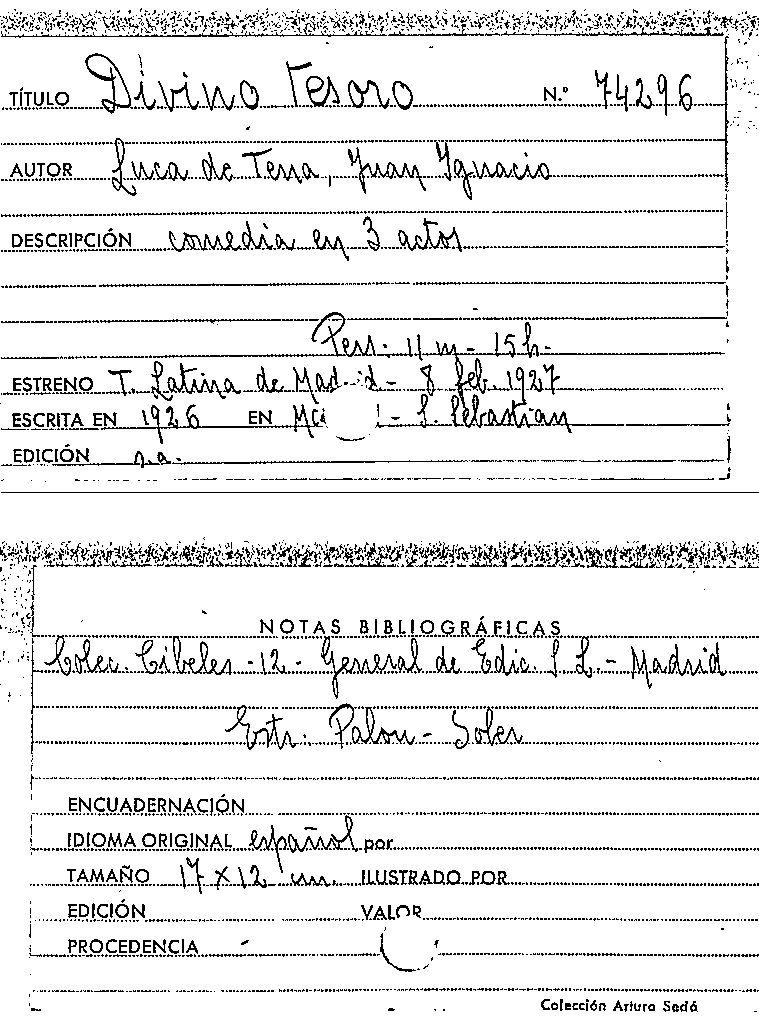 TÍTULO Divino Tesoro N.º 74296
AUTOR Luca de Tena, Juan Ignacio
DESCRIPCIÓN comedia en 3 actos
Pers: 11 m - 15 h -
ESTRENO T. Latina de Madrid - 8 feb. 1927
ESCRITA EN 1926 EN - S. Sebastian
EDICIÓN s.a.
NOTAS BIBLIOGRÁFICAS
Colec. Cibeles - 12 - General de Edic. S L. - Madrid
Estr: Palou - Soler
ENCUADERNACIÓN
IDIOMA ORIGINAL español por
TAMAÑO 17 x 12 cm. ILUSTRADO POR
EDICIÓN VALOR
PROCEDENCIA -
Colección Arturo Sedó